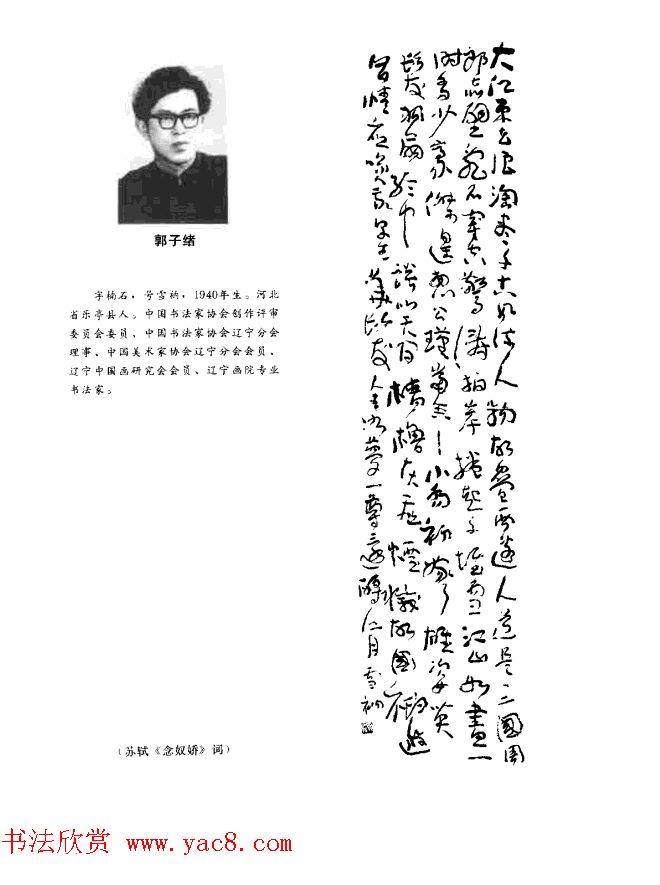 郭子绪
字楠石，号雪衲，1940年生。河北
省乐亭县人。中国书法家协会创作评审
委员会委员、中国书法家协会辽宁分会
理事、中国美术家协会辽宁分会会员、
辽宁中国画研究会会员、辽宁画院专业
书法家。
大江東去浪淘盡千古風流人物故壘西邊人道是三國周
郎赤壁亂石穿空驚濤拍岸捲起千堆雪江山如畫一
時多少豪傑遙想公瑾當年小喬初嫁了雄姿英
發羽扇綸巾談笑間檣櫓灰飛煙滅故國神遊
多情應笑我早生華髮人生如夢一尊還酹江月雪衲
（苏轼《念奴娇》词）
书法欣赏 www.yac8.com